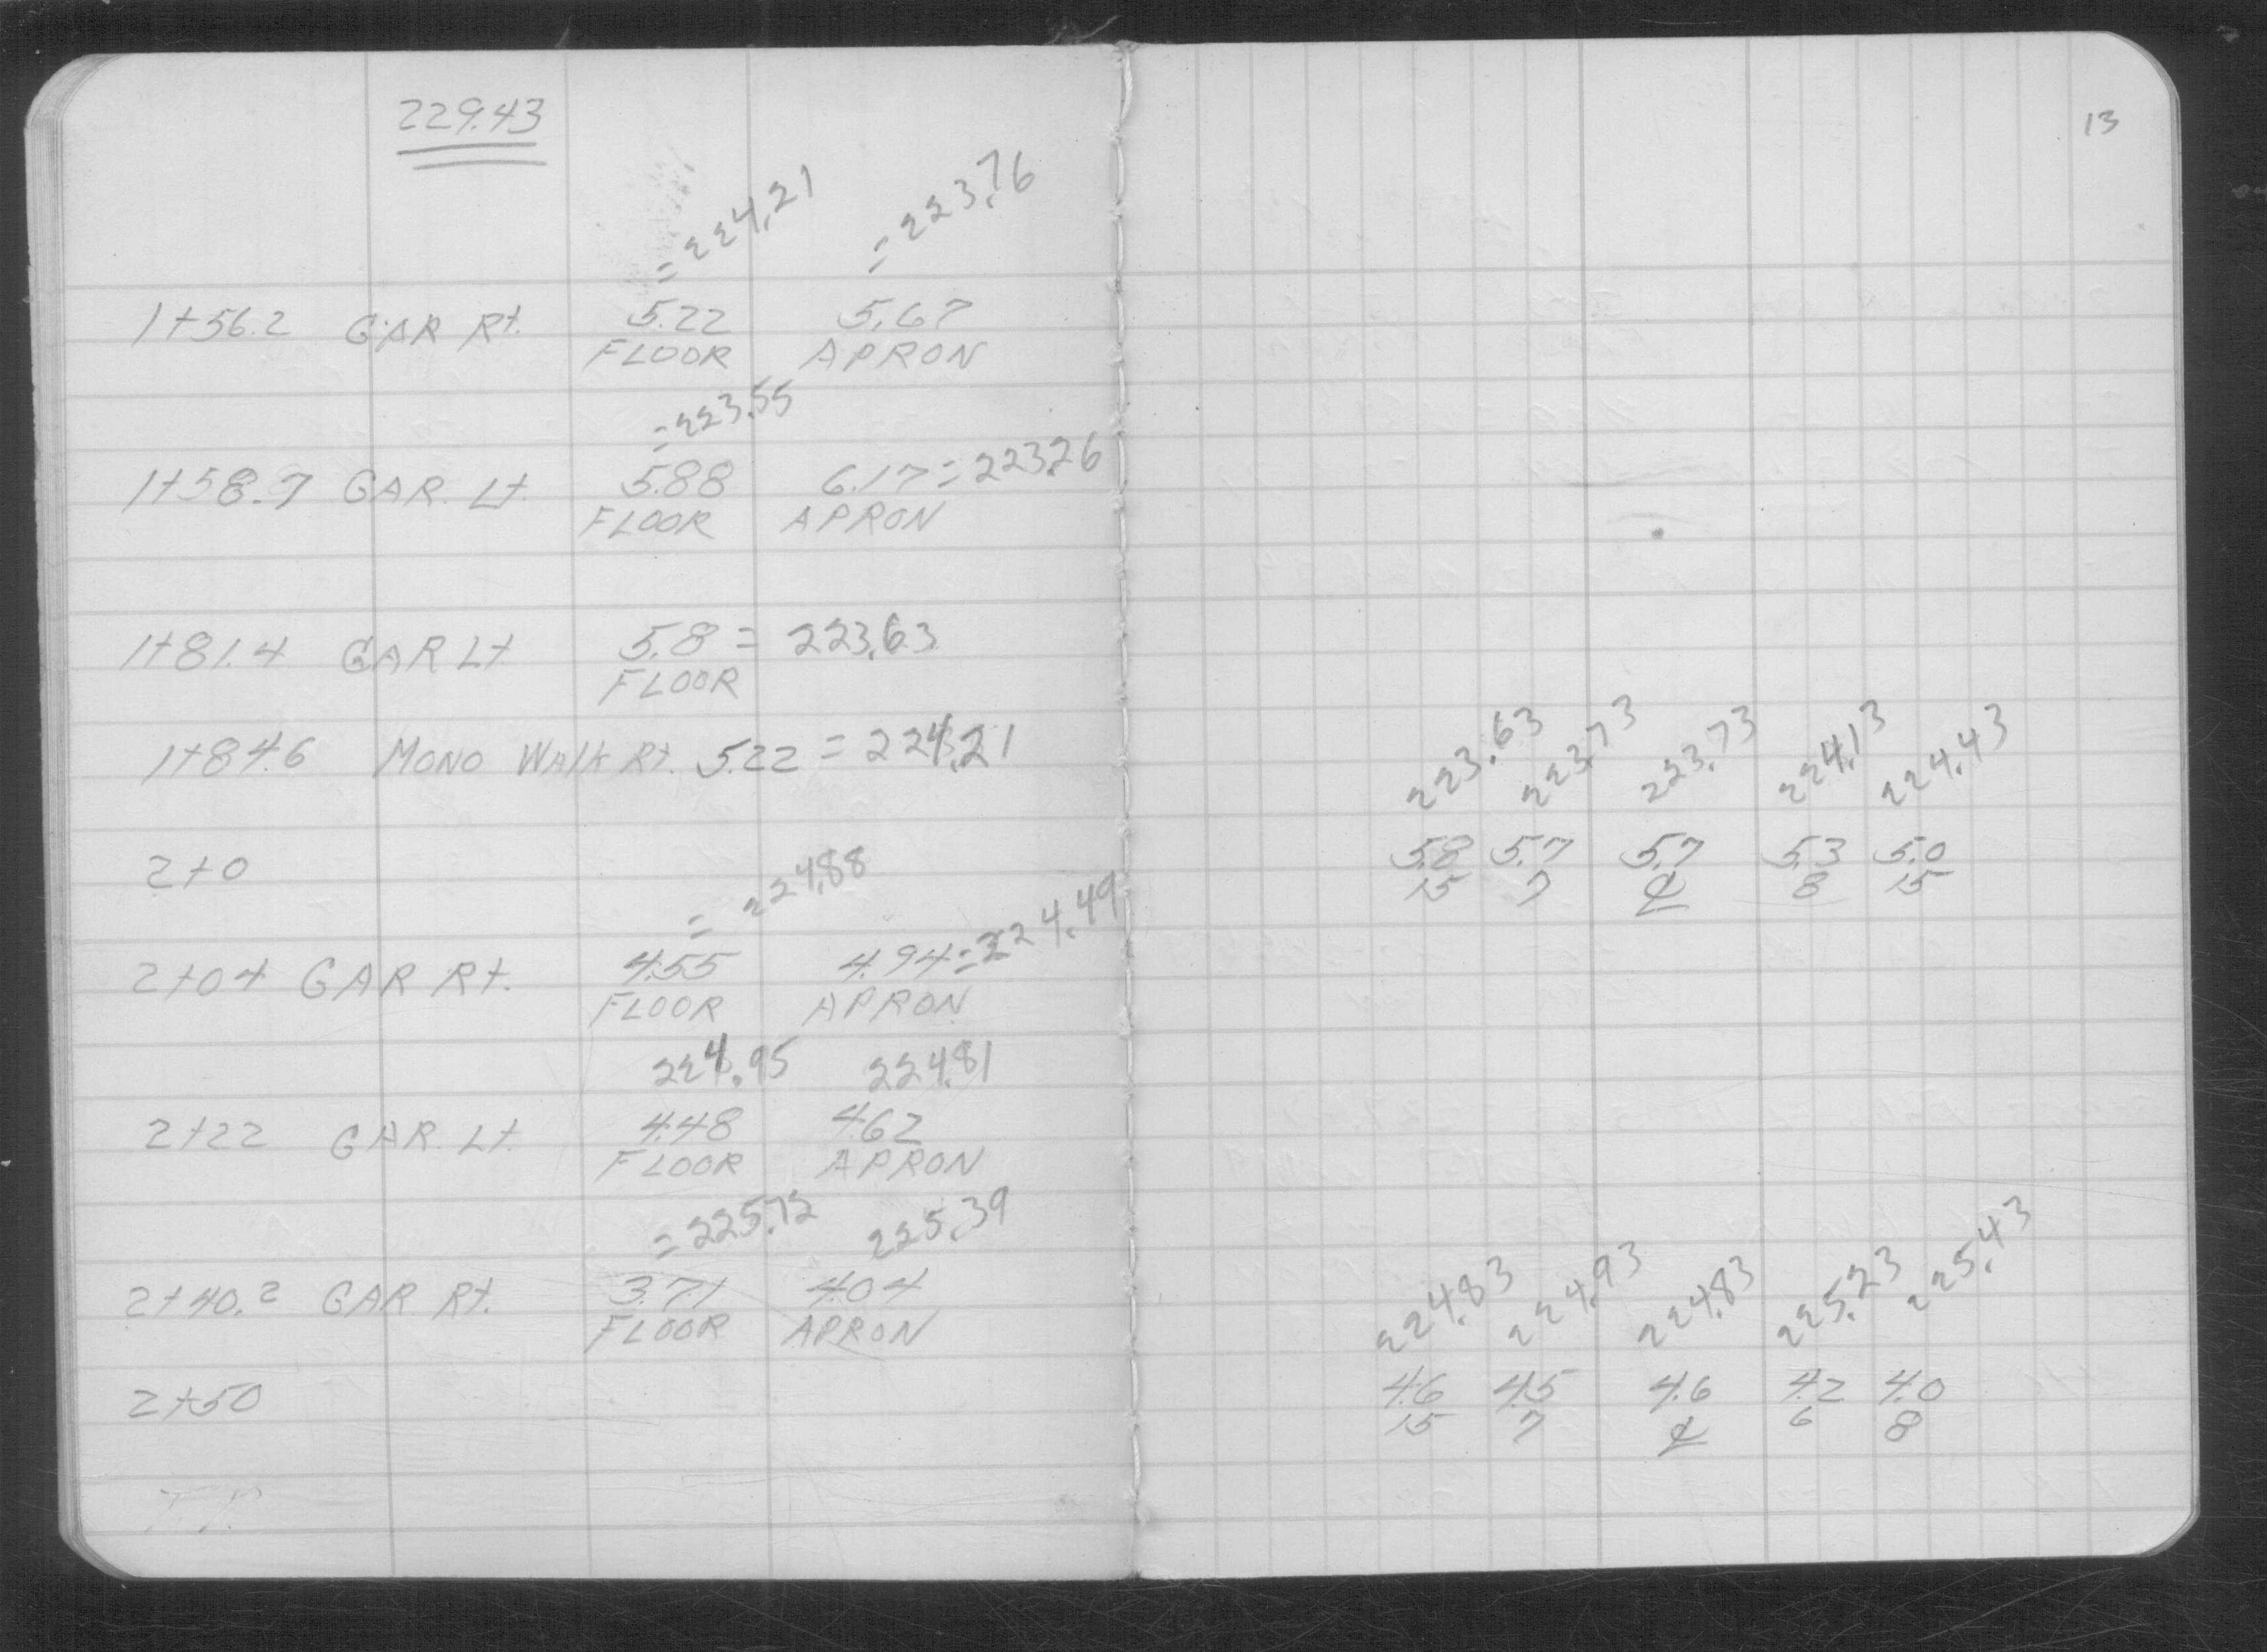 229.43
13
= 224.21 = 223.76
1+56.2 GAR Rt. 5.22 5.67
FLOOR APRON
= 223.55
1+58.7 GAR. Lt. 5.88 6.17 = 223.26
FLOOR APRON
1+81.4 GAR Lt 5.8 = 223.63
FLOOR
1+84.6 MONO WAlk Rt. 5.22 = 224.21
223.63 223.73 223.73 224.13 224.43
2+0 5.8 5.7 5.7 5.3 5.0
15 7 ℄ 8 15
= 224.88
2+04 GAR Rt. 4.55 4.94 = 224.49
FLOOR APRON
224.95 224.81
2+22 GAR. Lt. 4.48 4.62
FLOOR APRON
= 225.72 225.39
2+40.2 GAR Rt. 3.71 4.04
FLOOR APRON
224.83 224.93 224.83 225.23 225.43
2+50 4.6 4.5 4.6 4.2 4.0
15 7 ℄ 6 8